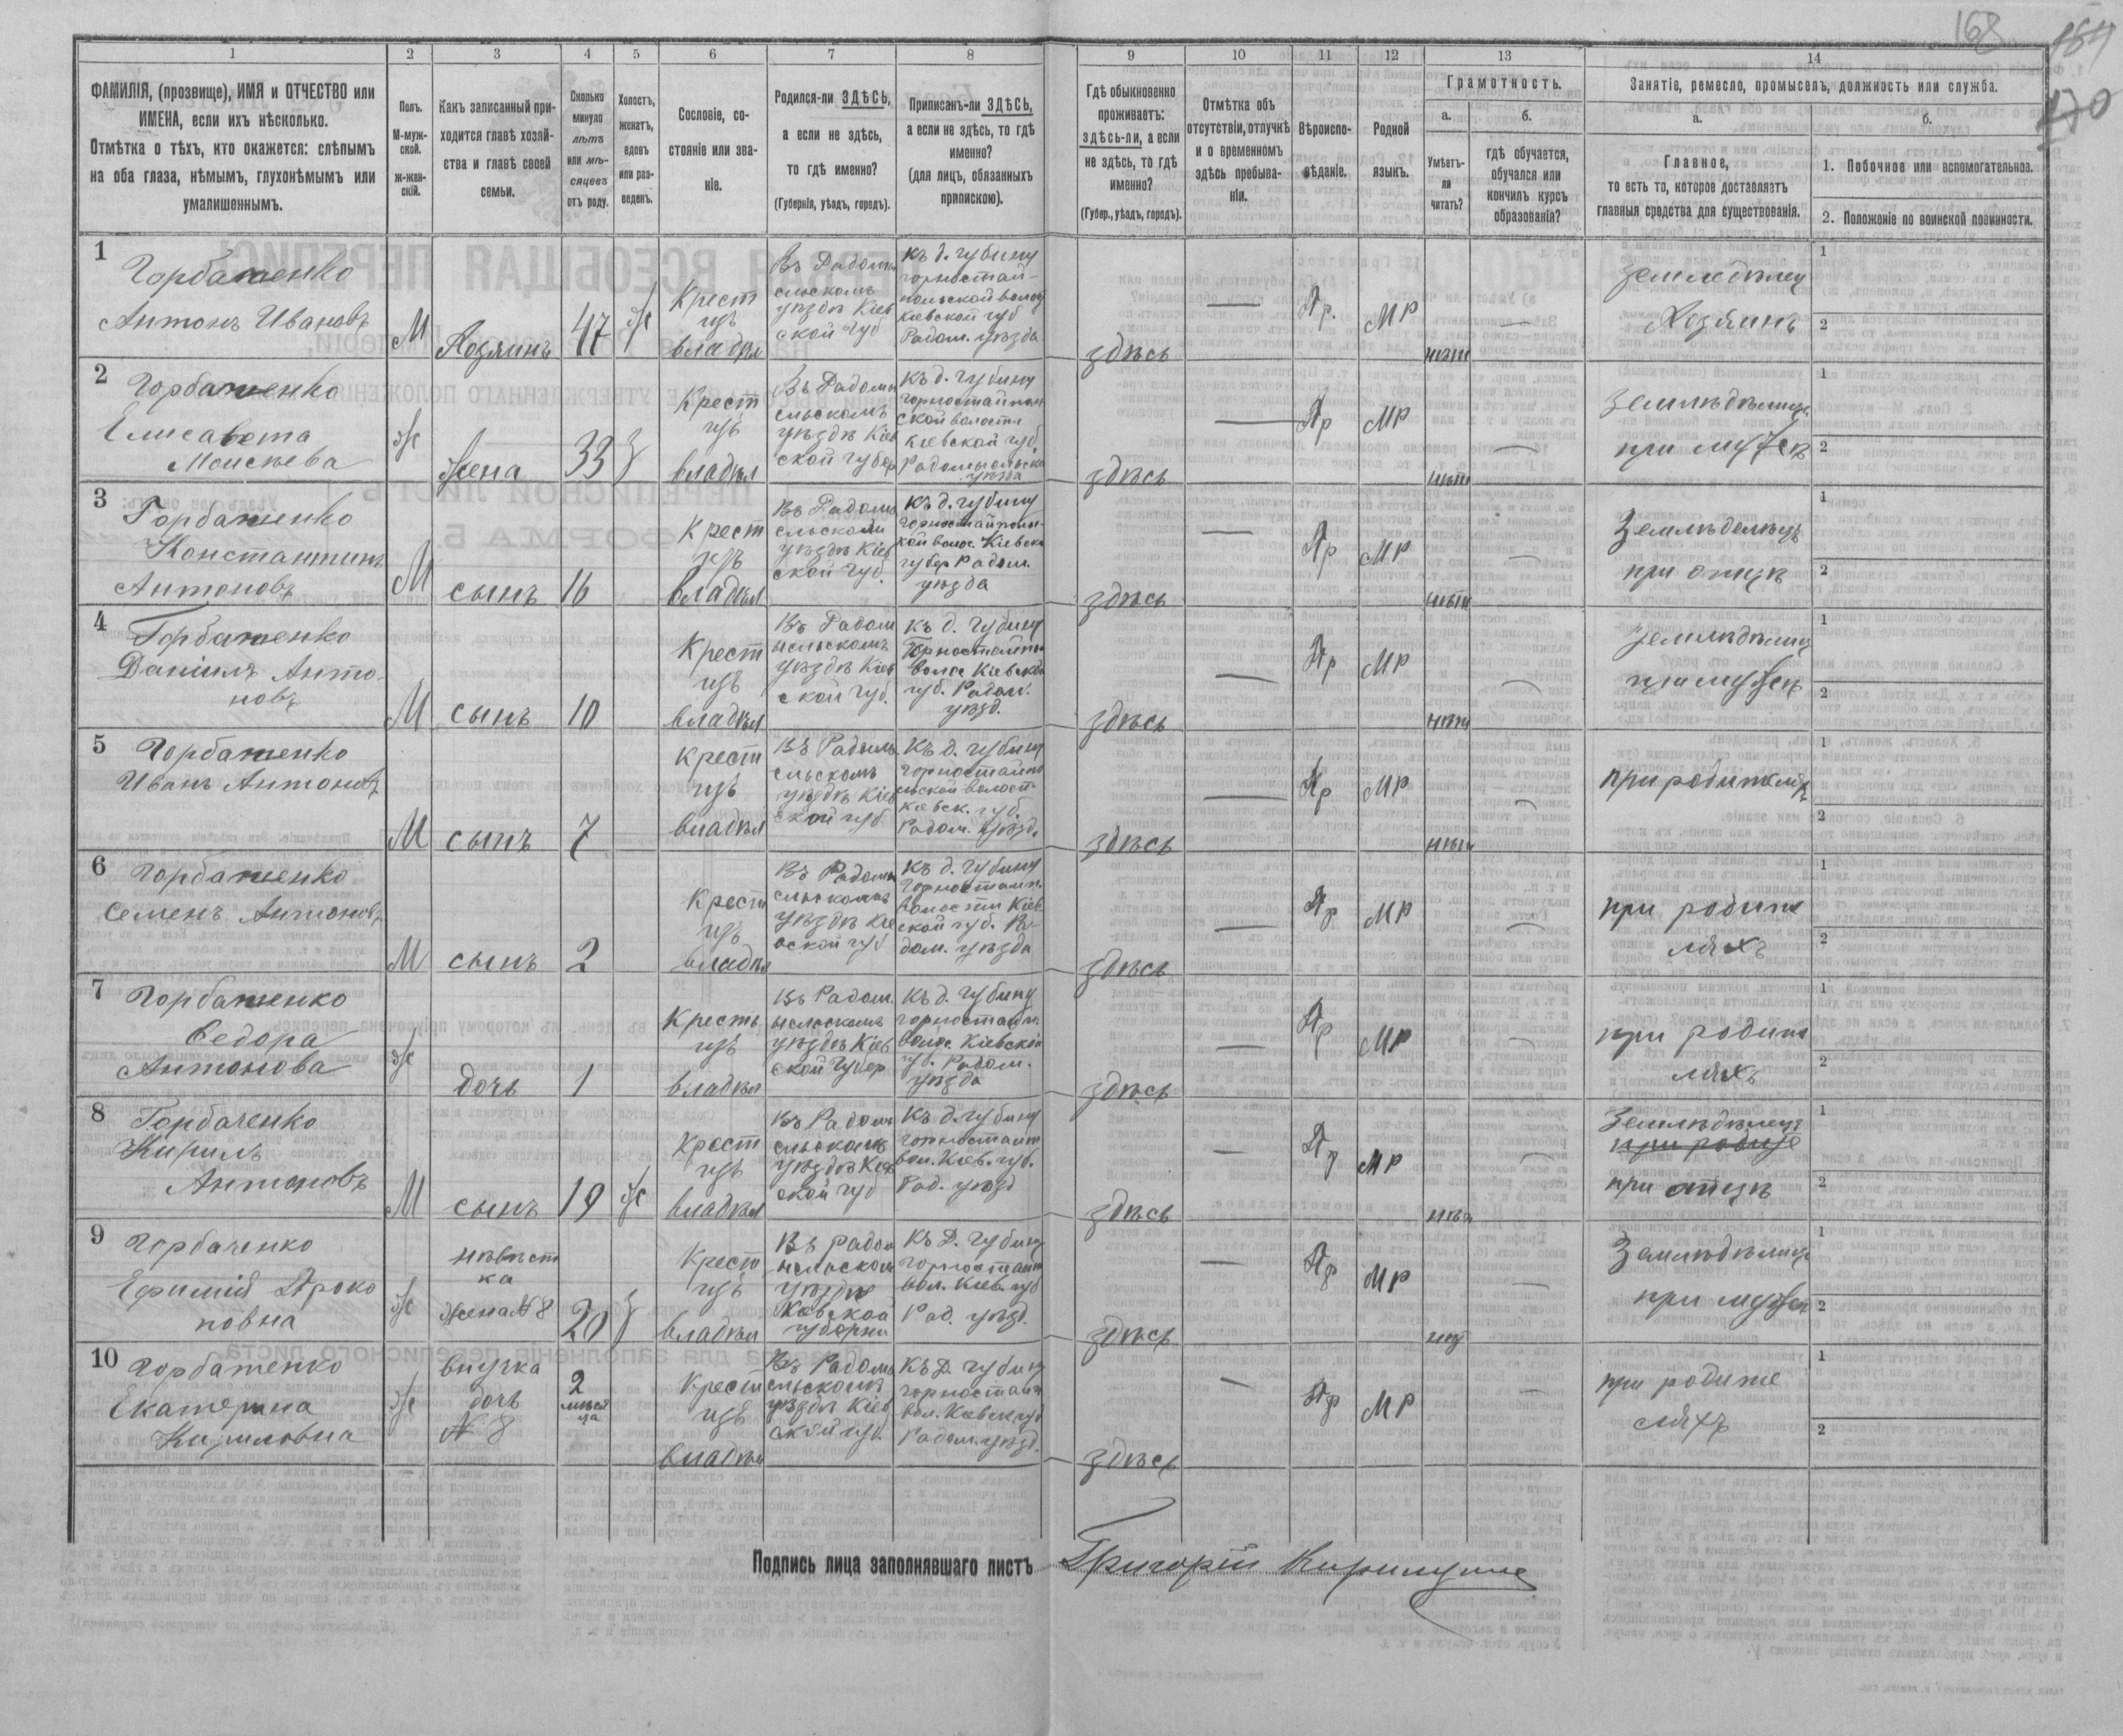 168
164
170
1
2
3
4
5
6
7
8
9
10
11
12
13
14
ФАМИЛІЯ, (прозвище), ИМЯ и ОТЧЕСТВО или
ИМЕНА, если ихъ нѣсколько.
Отмѣтка о тѣхъ, кто окажется: слѣпымъ
на оба глаза, нѣмымъ, глухонѣмымъ или
умалишеннымъ.
Полъ.
М-муж-
ской.
ж-жен-
скій.
Какъ записанный при-
ходится главѣ хозяй-
ства и главѣ своей
семьи.
Сколько
минуло
лѣтъ
или мѣ-
сяцевъ
отъ роду.
Холостъ,
женатъ,
вдовъ
или раз-
веденъ.
Сословіе, со-
стояніе или зва-
ніе.
Родился-ли ЗДѢСЬ,
а если не здѣсь,
то гдѣ именно?
(Губернія, уѣздъ, городъ).
Приписанъ-ли ЗДѢСЬ,
а если не здѣсь, то гдѣ
именно?
(для лицъ, обязанныхъ
припискою).
Гдѣ обыкновенно
проживаетъ:
здѣсь-ли, а если
не здѣсь, то гдѣ
именно?
(Губер., уѣздъ, городъ).
Отмѣтка объ
отсутствіи, отлучкѣ
и о временномъ
здѣсь пребыва-
ніи.
Вѣроиспо-
вѣданіе.
Родной
языкъ.
Грамотность.
а.
Умѣетъ-
ли
читать?
б.
гдѣ обучается,
обучался или
кончилъ курсъ
образованія?
Занятіе, ремесло, промыселъ, должность или служба.
а.
Главное,
то есть то, которое доставляетъ
главныя средства для существованія.
б.
1. Побочное или вспомогательное.
2. Положеніе по воинской повинности.
1
Горбатенко
Антонъ Ивановъ
М
Хозяинъ
47
ж
Крест
изъ
владѣл
Въ Радомы
сльскомъ
уѣздѣ Кіев
ской губ
Къ д. Губину
Горностай-
польской волос
Кіевской губ
Радом. уѣзда
здѣсь
—
Пр.
МР
нѣт
—
Земледѣлец
Хозяинъ
1
2
2
Горбатенко
Елисавета
Моисѣева
ж
Жена
33
з
Крест
изъ
владѣл
Въ Радомы
сльскомъ
уѣздѣ Кіев
ской губер
Къ д. Губину
Горностайпол
ской волости
Кіевской губ.
Радомысльска
уѣзда
здѣсь
—
Пр
МР
нѣт
—
Земледѣлица
при мужѣ
1
2
3
Горбатенко
Константинъ
Антоновъ
М
сынъ
16
Крест
изъ
владѣл
Въ Радомы
сльском
уѣздѣ Кіев
ской губ.
Къ д. Губину
Горностайполь-
кой волос. Кіевск
губер Радом.
уѣзда
здѣсь
—
Пр
МР
нѣт
—
Земледелецъ
при отцѣ
1
2
4
Горбатенко
Даніилъ Анто-
новъ
М
сынъ
10
Крест
изъ
владѣл
Въ Радом
ысльскомъ
уѣздѣ Кіев
ской губ.
Къ д. Губину
Горностайпол
волос Кіевской
губ. Радом.
уѣзд.
здѣсь
—
Пр
МР
нѣт
—
Земледѣлец
при мужѣ
1
2
5
Горбатенко
Иванъ Антоновъ
М
сынъ
7
Крест
изъ
владѣл
Въ Радомы
сльскомъ
уѣздѣ Кіев
ской губ
Къ д. Губину
Горностайпо
льской волост
Кіевск. губ.
Радом. уѣзд.
здѣсь
—
Пр
МР
нѣт
—
при родителяхъ
1
2
6
Горбатенко
Семенъ Антоновъ
М
сынъ
2
Крест
изъ
владѣл
Въ Радомы
сльскомъ
уѣздѣ Кіе
вской губ
Къ д. Губину
Горностайп.
волости Кіев
ской губ. Ра-
дом. уѣзда
здѣсь
—
Пр
МР
—
при родите
ляхъ
1
2
7
Горбатенко
Ѳедора
Антонова
ж
дочь
1
Крестъ
изъ
владѣл
Въ Радом.
ысльскомъ
уѣздѣ Кіев
ской губер
Къ д. Губину
Горностайп.
волос. Кіевской
губ. Радом.
уѣзда
здѣсь
—
Пр
МР
—
при родите
ляхъ
1
2
8
Горбаченко
Кирилъ
Антоновъ
М
сынъ
19
ж
Крест
изъ
владѣл
Въ Радом
сльскомъ
уѣздѣ Кіев
ской губ
Къ д. Губину
Горностайп
вол. Кіев. губ.
Рад. уѣзд
здѣсь
—
Пр
МР
нѣт
—
Земледѣлецъ
при родите
при отцѣ
1
2
9
Горбаченко
Ефимія Проко
повна
ж
невѣст
ка
Жена № 8
20
з
Крест
изъ
владѣл
Въ радом
ысльском
уѣздѣ
Кіевской
губерни
Къ Д. Губину
Горностайп
вол. Кіев. губ
Рад. уѣзд.
здѣсь
—
Пр
МР
нѣт
—
Земледѣлица
при мужѣ
1
2
10
Горбатенко
Екатерина
Кириловна
ж
внучка
дочь
№ 8
2
мѣся
ца
Крест
изъ
владѣл
Въ Радомы
сльскомъ
уѣздѣ Кіев
ской губ.
Къ Д. Губину
Горностайп
вол. Кіевск губ
Радом. уѣзд.
здѣсь
—
Пр
МР
—
при родите
ляхъ
1
2
Подпись лица заполнявшаго листъ
Григорій